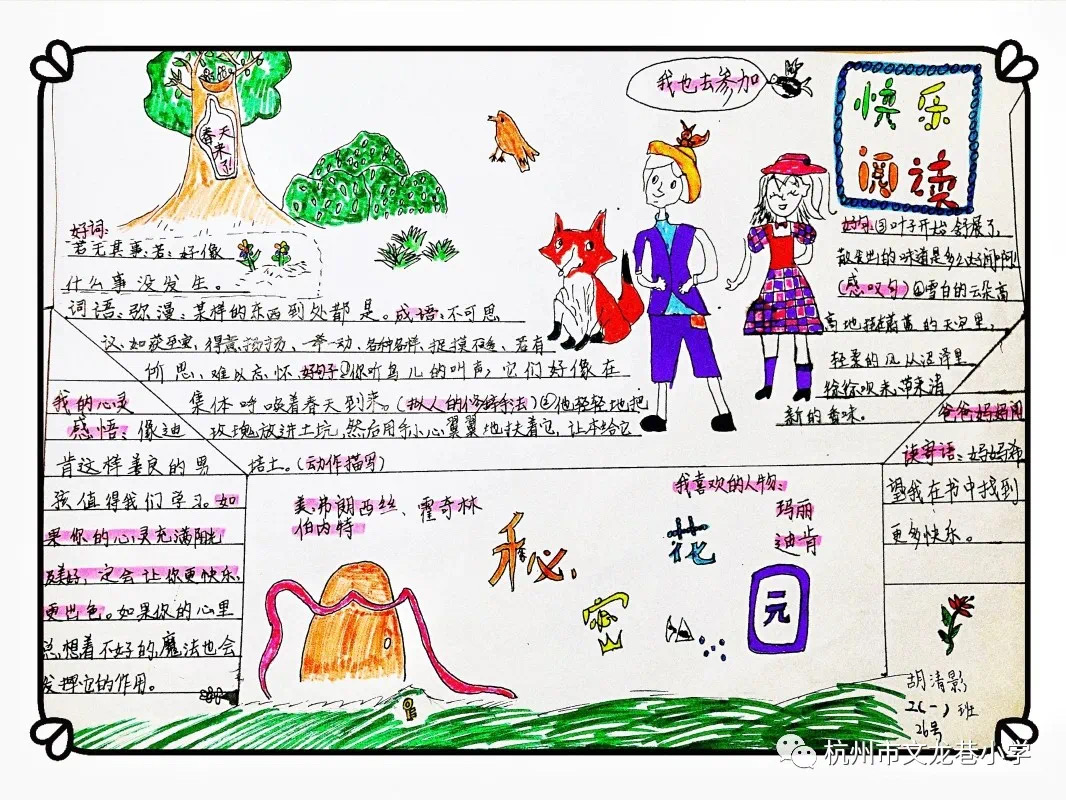 春天来了!
我也去参加
快乐
阅读
好词:
若无其事:若:好像
什么事没发生。
词语:弥漫:某样的东西到处都是。成语:不可思
议、如获至宝、得意扬扬、一举一动、各种各样、捉摸不透、若有
所思、难以忘怀。好句子①你听鸟儿的叫声,它们好像在
集体呼唤着春天到来。(拟人的修辞手法)②他轻轻地把
玫瑰放进土坑,然后用手小心翼翼地扶着它,让本给它
培土。(动作描写)
好句③叶子开始舒展了,
散发出的味道是多么好闻啊
(感叹句)④雪白的云朵高
高地挂在蔚蓝的天空里,
轻柔的风从沼泽里
徐徐吹来,带来清
新的香味。
我的心灵
感悟:像迪
肯这样善良的男
孩值得我们学习。如
果你的心灵充满阳光
及美好,一定会让你更快乐,
更出色。如果你的心里
总想着不好的,魔法也会
发挥它的作用。
美弗朗西丝、霍奇森
伯内特
秘
密
花
元
我喜欢的人物:
玛丽
迪肯
爸爸妈妈阅
读寄语:妈妈希
望我在书中找到
更多快乐。
胡清影
2(一)班
26号
杭州市文龙巷小学